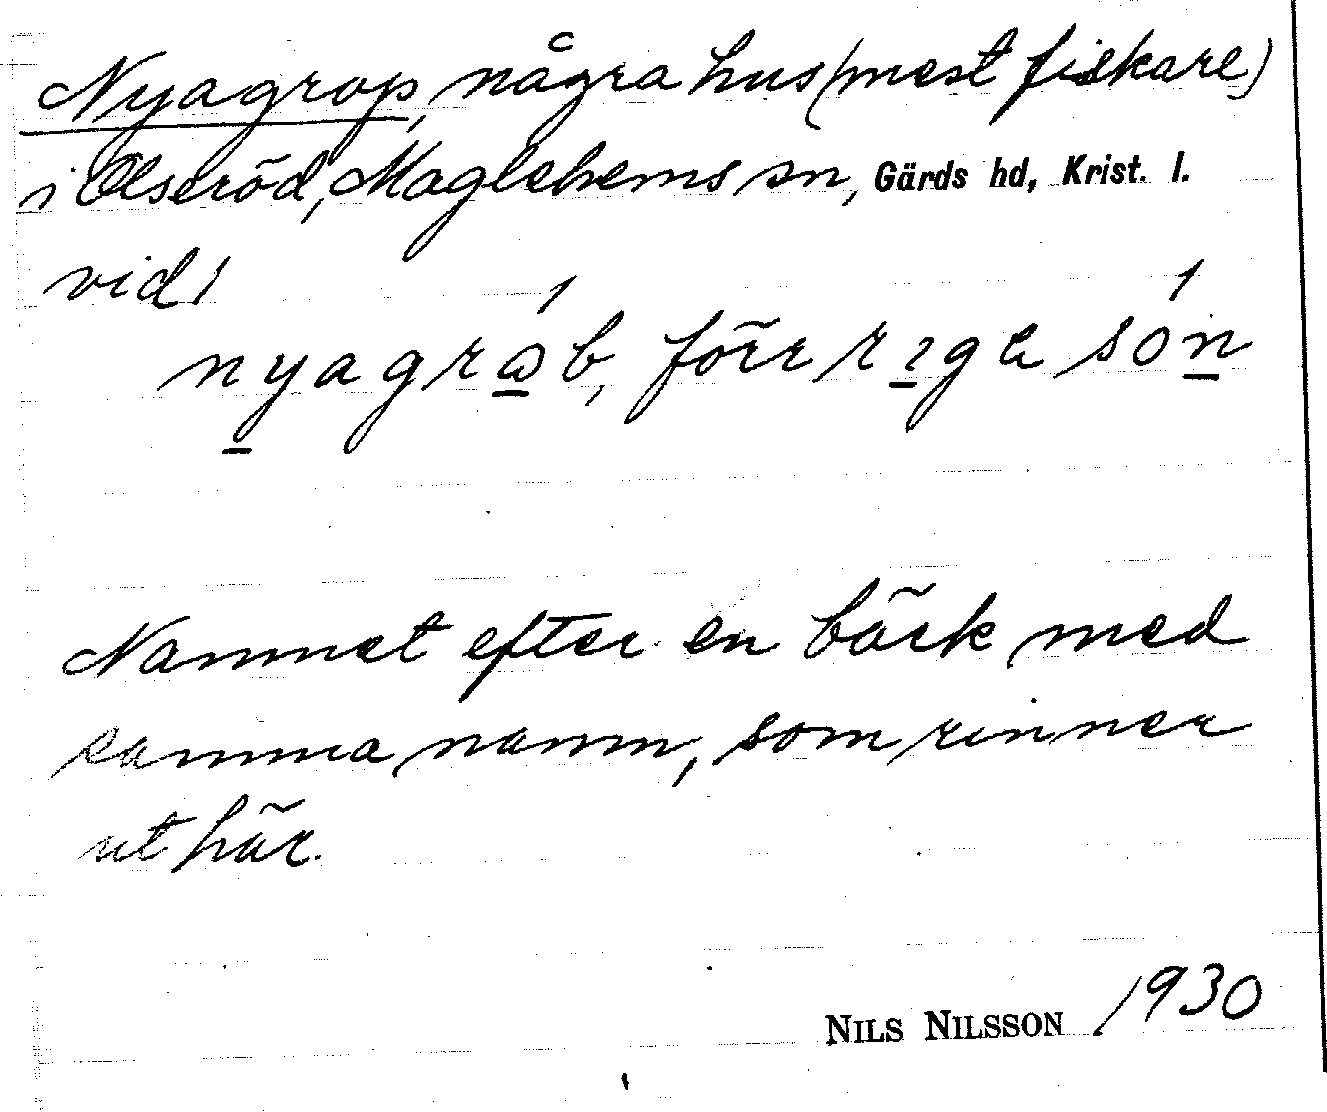 Nyagrop, några hus (mest fiskare)
i Olseröd, Maglehems sn, Gärds hd, Krist. l.
vid
nyagråb, förr rige són
Namnet efter en bäck med
samma namn, som rinner
ut här.
NILS NILSSON 1930